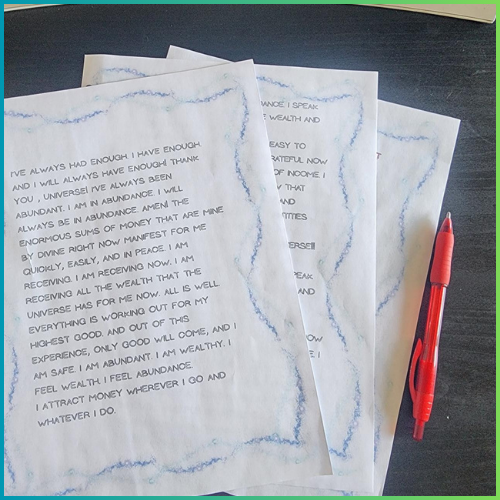 I'VE ALWAYS HAD ENOUGH. I HAVE ENOUGH
AND I WILL ALWAYS HAVE ENOUGH! THANK
YOU , UNIVERSE! I'VE ALWAYS BEEN
ABUNDANT. I AM IN ABUNDANCE. I WILL
ALWAYS BE IN ABUNDANCE. AMEN! THE
ENORMOUS SUMS OF MONEY THAT ARE MINE
BY DIVINE RIGHT NOW MANIFEST FOR ME
QUICKLY, EASILY, AND IN PEACE. I AM
RECEIVING. I AM RECEIVING NOW. I AM
RECEIVING ALL THE WEALTH THAT THE
UNIVERSE HAS FOR ME NOW. ALL IS WELL.
EVERYTHING IS WORKING OUT FOR MY
HIGHEST GOOD. AND OUT OF THIS
EXPERIENCE, ONLY GOOD WILL COME, AND I
AM SAFE. I AM ABUNDANT. I AM WEALTHY. I
FEEL WEALTH. I FEEL ABUNDANCE.
I ATTRACT MONEY WHEREVER I GO AND
WHATEVER I DO.
I SPEAK
WEALTH AND
EASY TO
GRATEFUL NOW
OF INCOME I
THAT
AND
SPEAK
AND
NOW
I